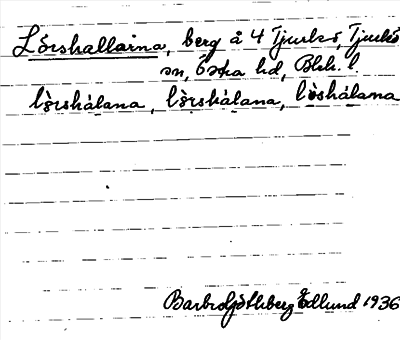 Lörshallarna, berg å 4 Tjurkö, Tjurkö
sn, Östra hd, Blek. l.
lò̤rshálana, lò̤rshálana, lò̤shálana
Göthberg Edlund 1936